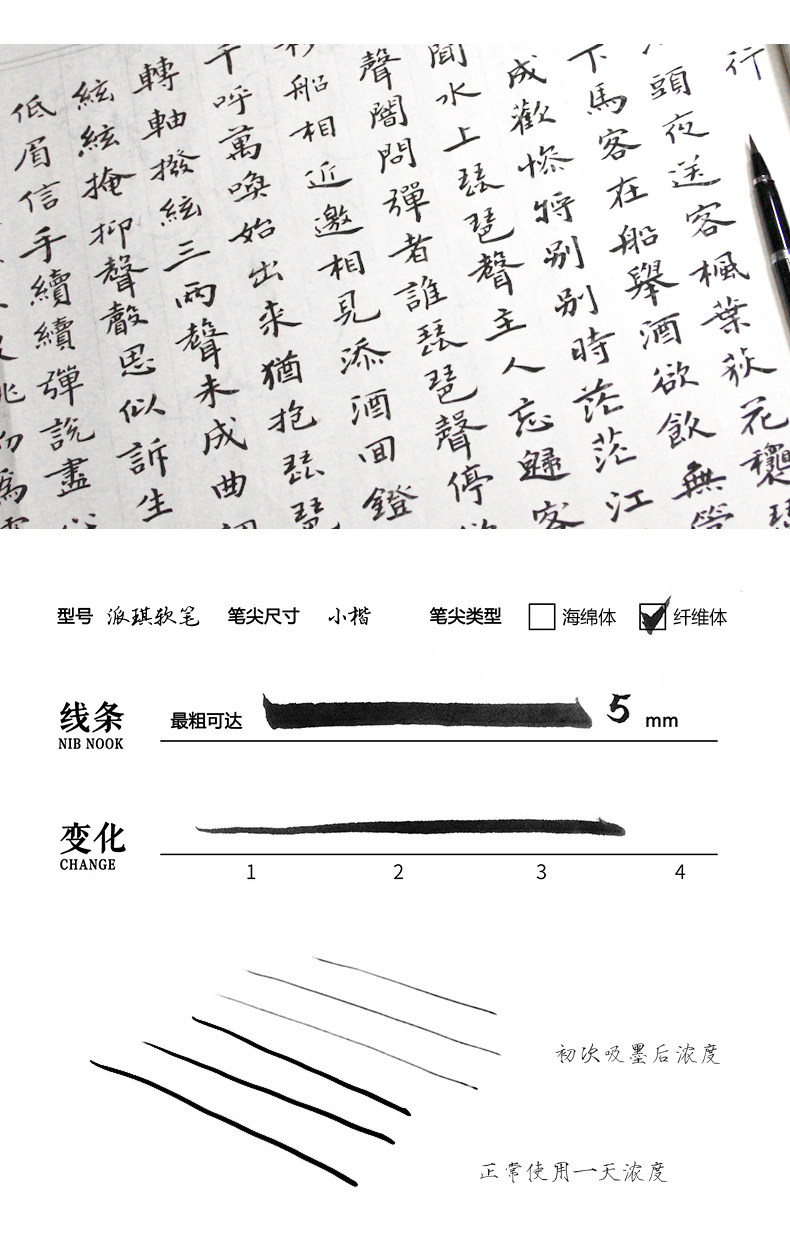 行
頭夜送客楓葉荻花
下馬客在船舉酒欲飲無管
成歡慘將别别時茫茫江
聞水上琵琶聲主人忘歸客
聲闇問彈者誰琵琶聲停
船相近邀相見添酒回鐙
千呼萬喚始出來猶抱琵琶
轉軸撥絃三兩聲未成曲
絃絃掩抑聲聲思似訴生
低眉信手續續彈說盡
型号 派琪软笔 笔尖尺寸 小楷 笔尖类型 海绵体 纤维体
线条 最粗可达 5 mm
NIB NOOK
变化
CHANGE
1 2 3 4
初次吸墨后浓度
正常使用一天浓度